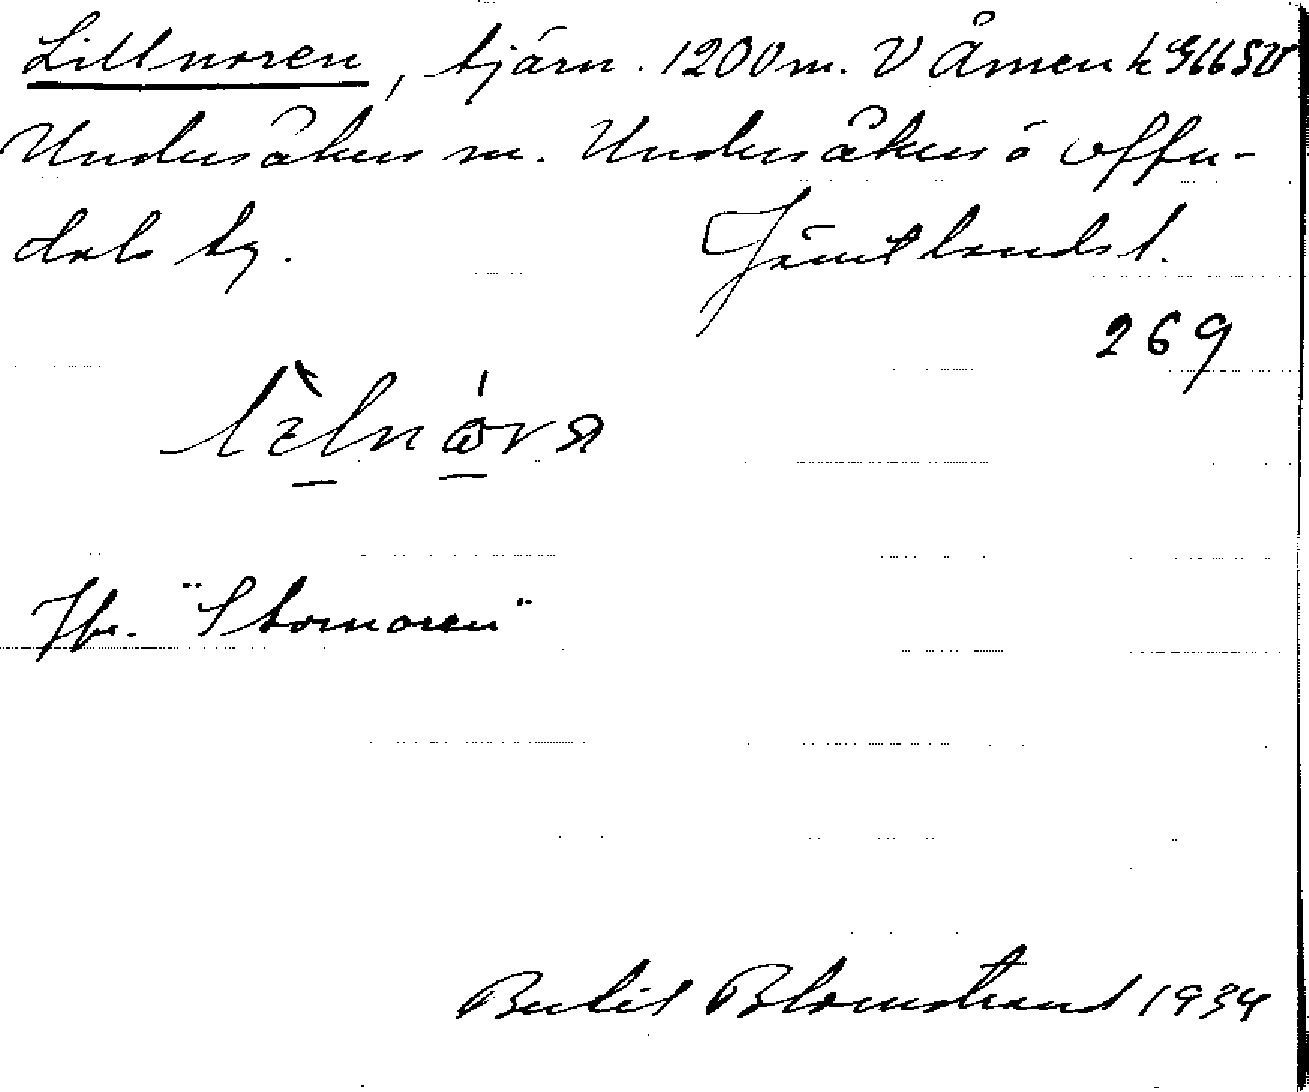 Lillnoren, tjärn. 1200 m. V Åmen k GübSV
Undersåkers sn. Undersåkers o Offer-
dals tg. Jämtlands l.
269
Jfr. "Stornoren"
Bertil Blomstrand 1934